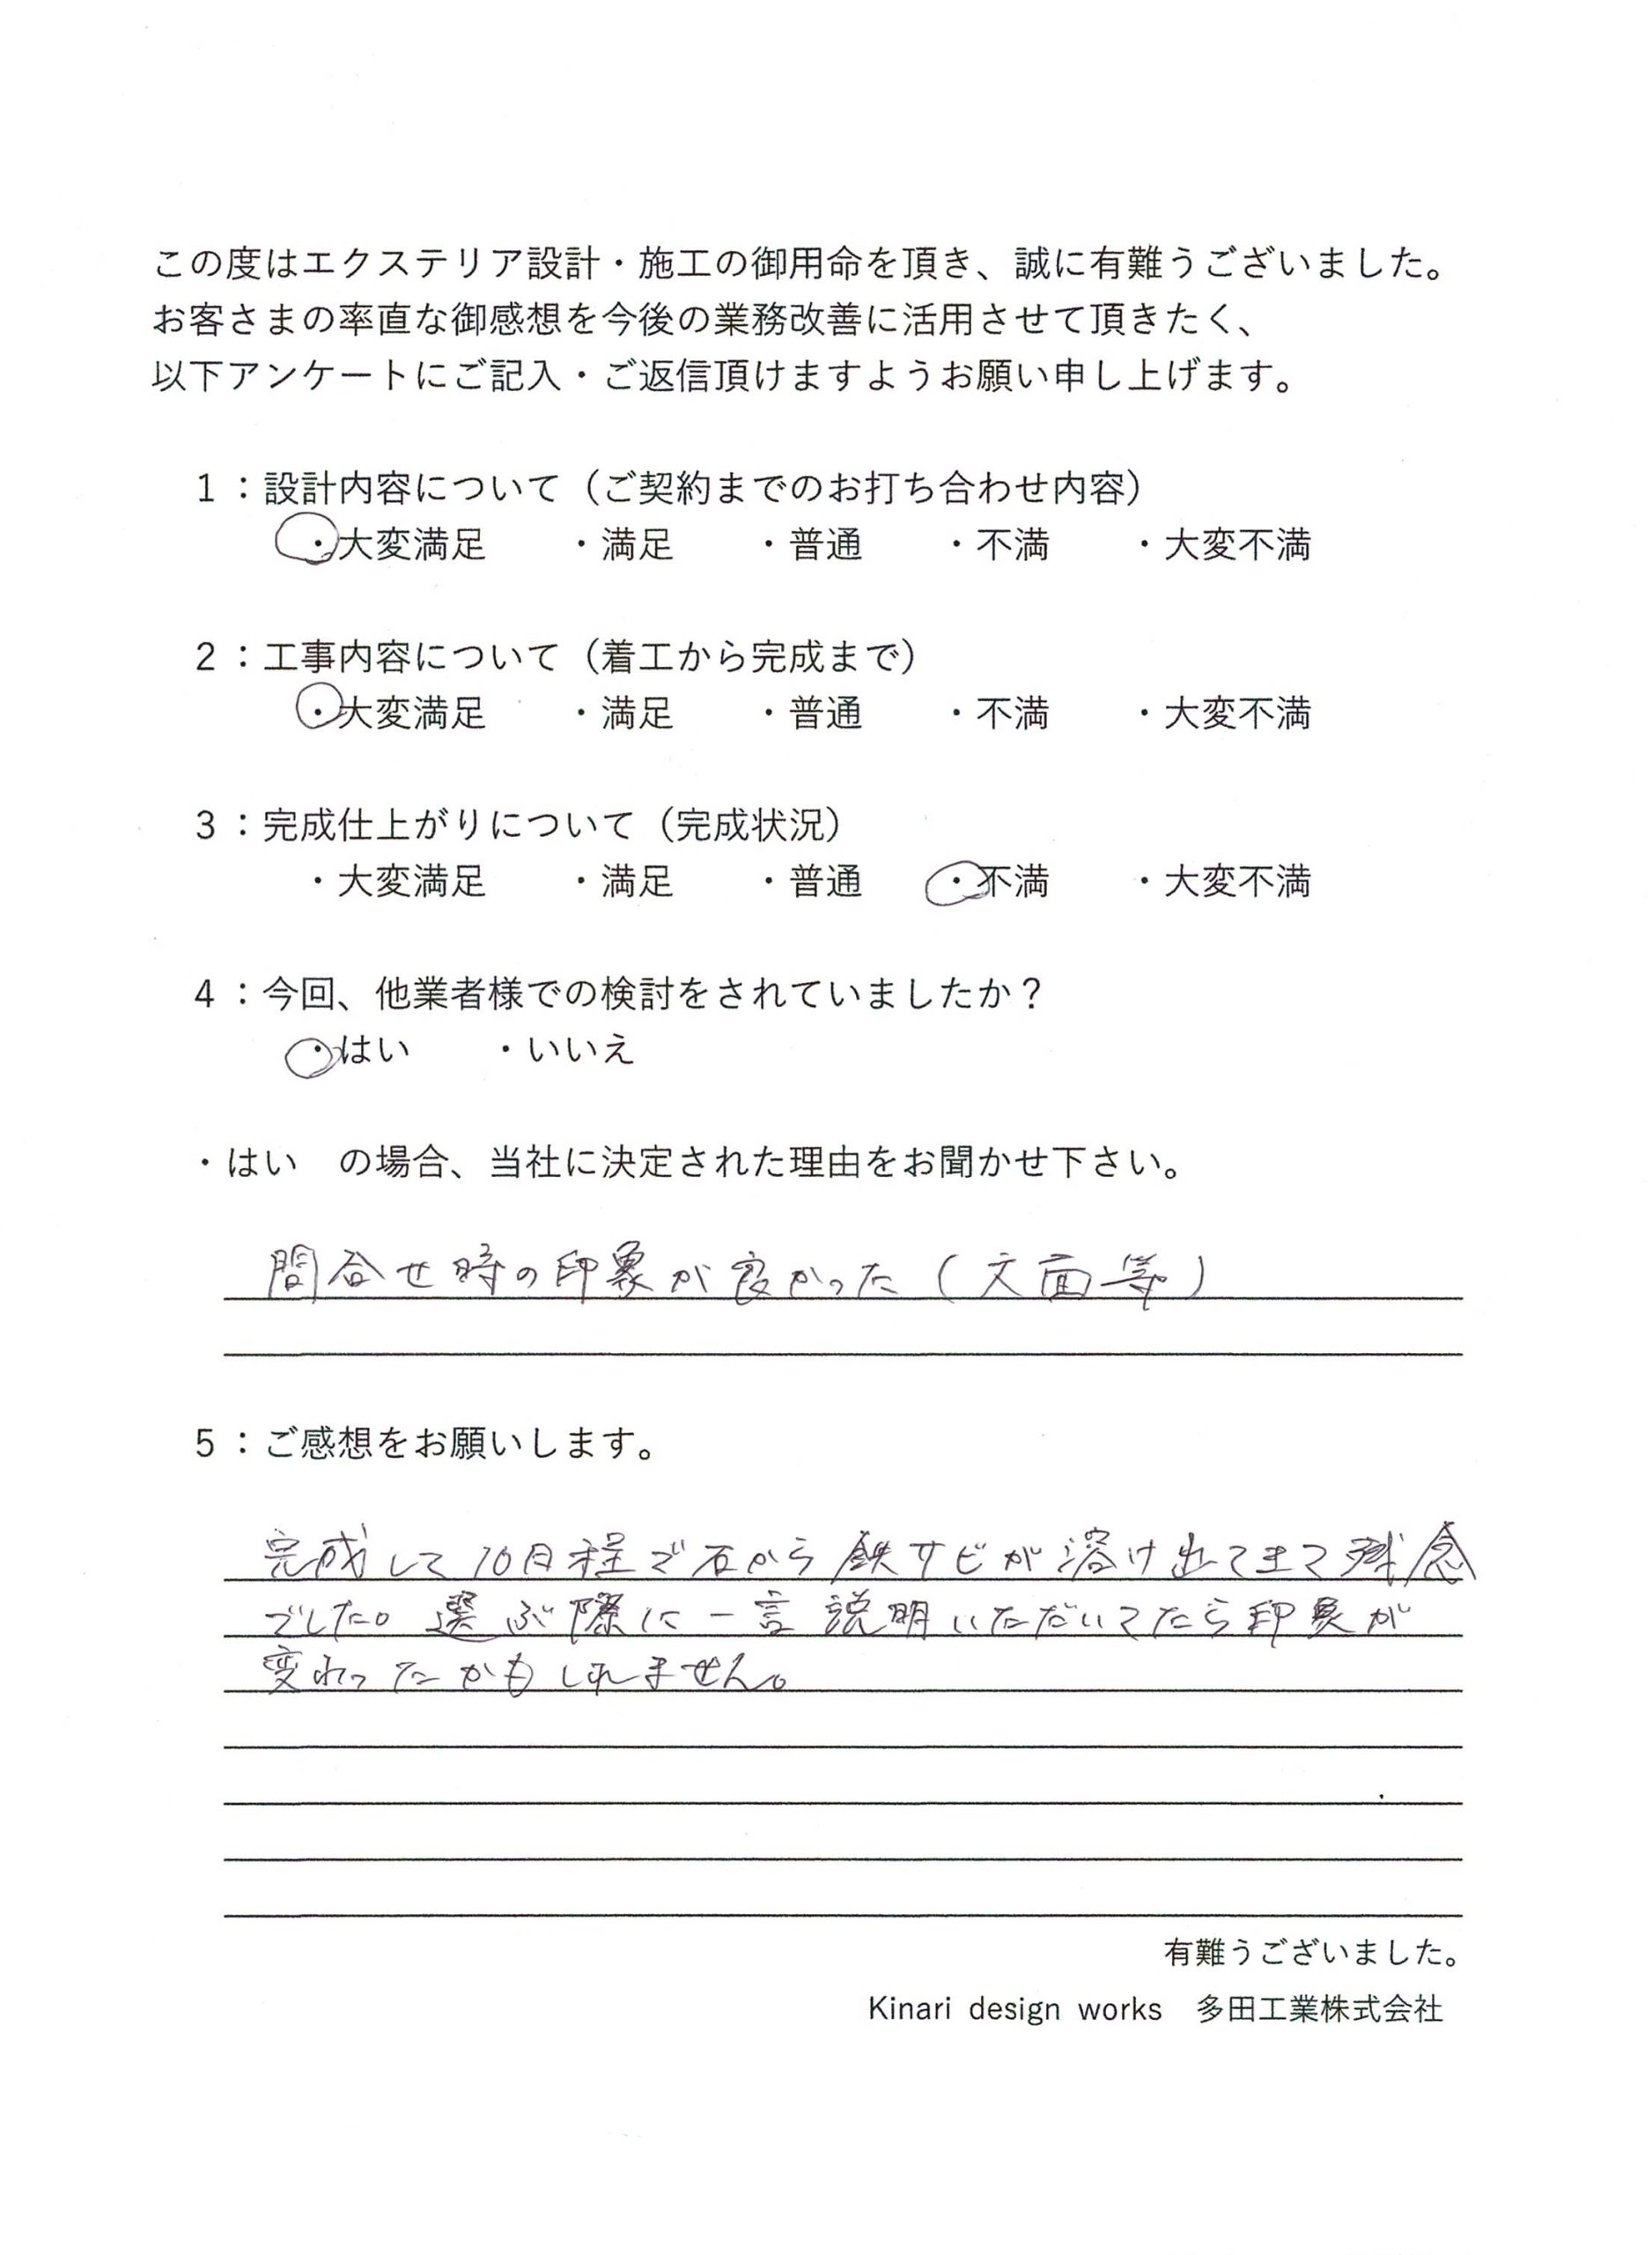 この度はエクステリア設計・施工の御用命を頂き、誠に有難うございました。
お客さまの率直な御感想を今後の業務改善に活用させて頂きたく、
以下アンケートにご記入・ご返信頂けますようお願い申し上げます。
1：設計内容について（ご契約までのお打ち合わせ内容）
・大変満足　・満足　・普通　・不満　・大変不満
2：工事内容について（着工から完成まで）
・大変満足　・満足　・普通　・不満　・大変不満
3：完成仕上がりについて（完成状況）
・大変満足　・満足　・普通　・不満　・大変不満
4：今回、他業者様での検討をされていましたか？
・はい　・いいえ
・はい　の場合、当社に決定された理由をお聞かせ下さい。
問合せ時の印象が良かった（文面等）
5：ご感想をお願いします。
完成して10日程で石から鉄サビが溶け出てきて残念
でした。選ぶ際に一言説明いただいてたら印象が
変わったかもしれません。
有難うございました。
Kinari design works　多田工業株式会社